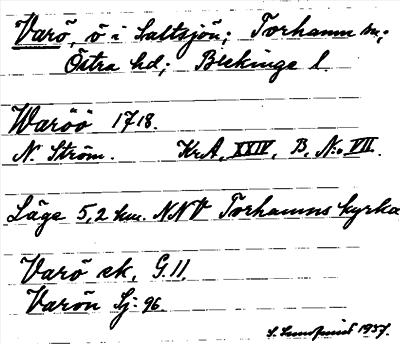 Varö, ö i Saltsjön; Torhamn sn;
Östra hd; Blekinge l.
Waröö 1718.
N. Ström. KrA, XXIV, B, No VII.
Läge 5,2 km. NNV Torhamns kyrka
Varö ek, G.11.
Varön Sj: 96.
S. 1957.